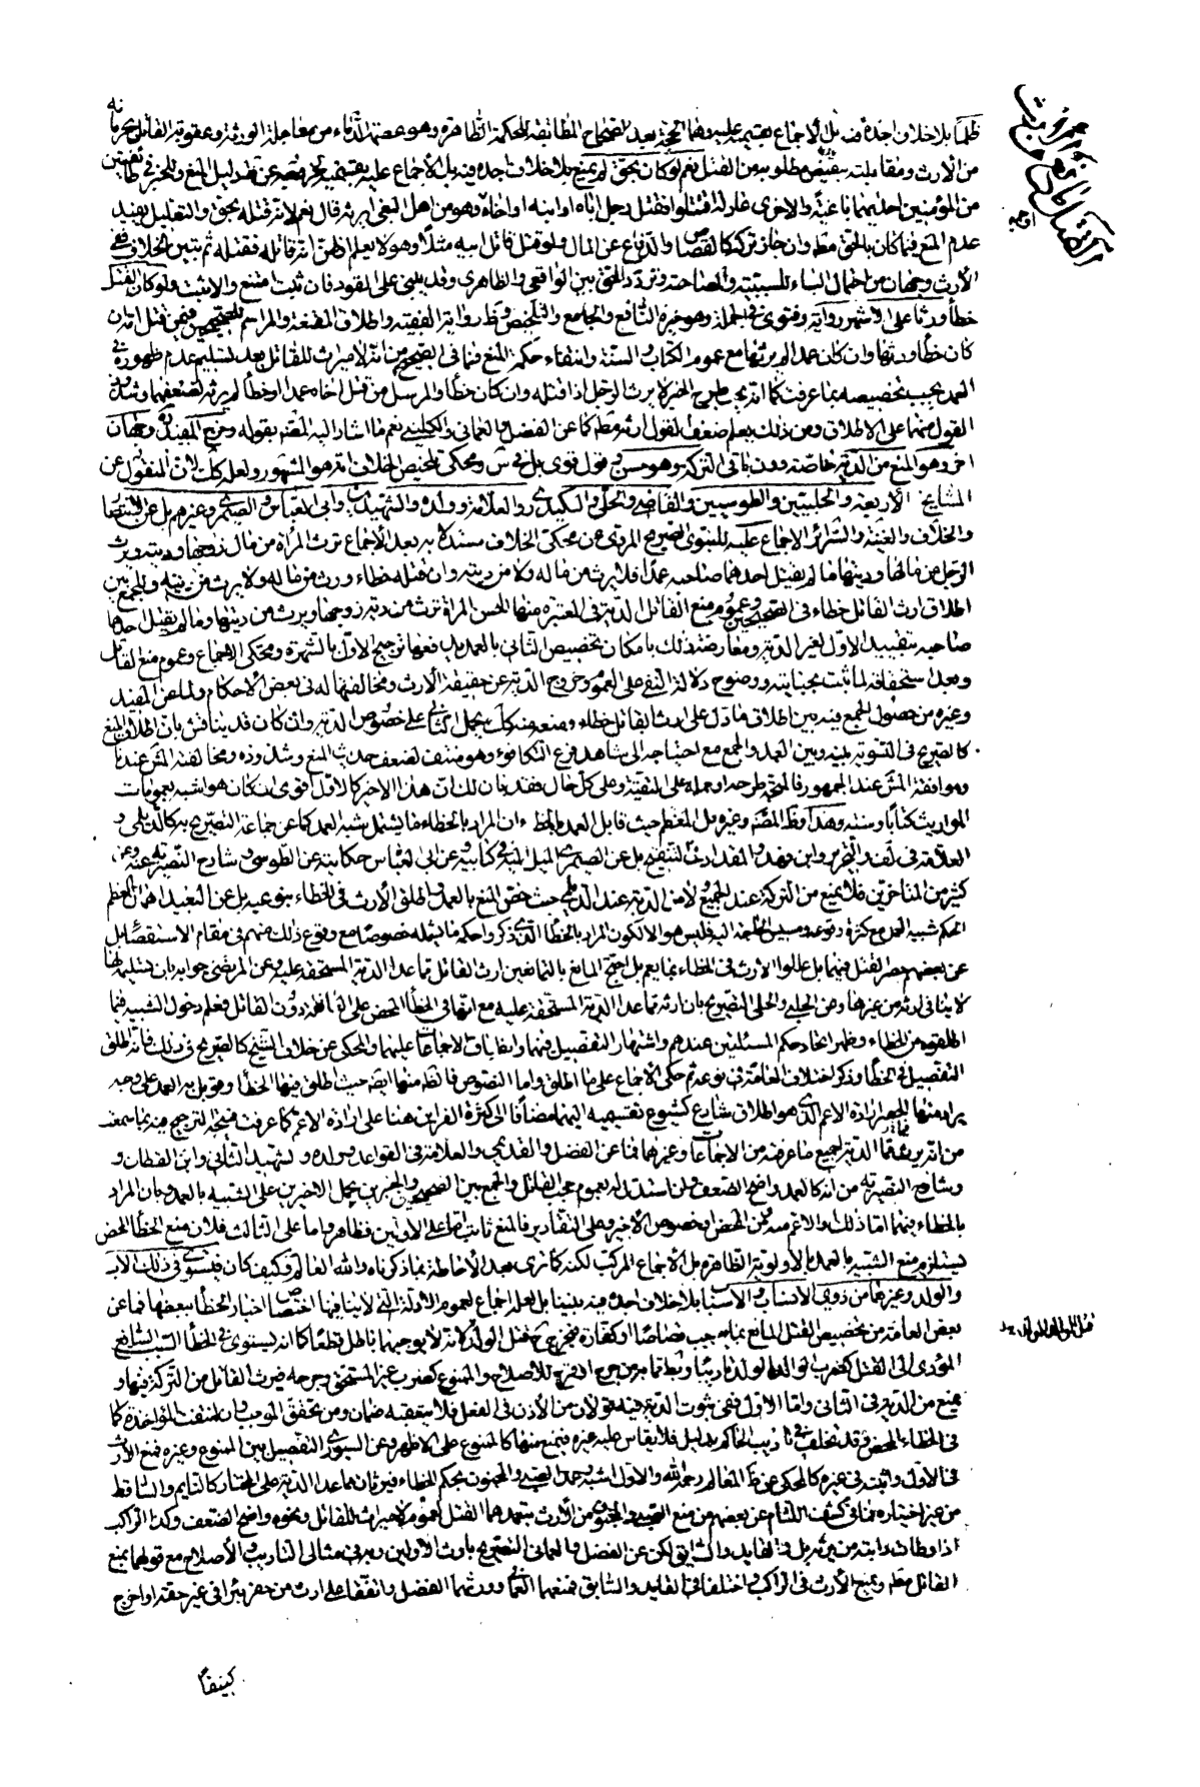 ظلما بلا خلاف اجده فيه بل الاجماع بقسميه عليه وهما الحجة بعد الصحاح المطابقة للحكمة الظاهرة وهو عصمة الدماء من معاجلة الورثة وعقوبة القاتل بحرمانه
من الارث ومقابلته بنقيض مطلوبه من القتل نعم لو كان بحق لم يمنع بلا خلاف اجده فيه بل الاجماع عليه بقسميه دليل المنع والخبر في طائفتين
من المؤمنين احديهما باغية والاخرى عادلة اقتتلوا فقتل رجل اباه او ابنه او اخاه وهو من اهل البغي ايرثه قال نعم لانه قتله بحق والتعليل يفيد
عدم المنع فيما كان بالحق مطم وان جاز تركه كالقصاص والدفاع عن المال ولو قتل قاتل ابيه مثلا وهو لا يعلم او ظن انه قاتله فقتله ثم تبين الخلاف ففي
الارث وجهان من احتمال الباء للسببية والمصاحبة وتردد الحق بين الواقعي والظاهري وقد يبنى على القود فان ثبت امتنع والا ثبت ولو كان القتل
خطأ ورث على الاشهر رواية وفتوى في الجملة وهو خيرة النافع والجامع والتلخيص وظ رواية الفقيه واطلاق المقنعة والمراسم للصحيحين فيمن قتل امه ان
كان خطأ ورثها وان كان عمدا لم يرثها مع عموم الكتاب والسنة وانتفاء حكمة المنع فما في الصحيح من انه لا ميراث للقاتل بعد تسليم عدم ظهوره في
العمد يجب تخصيصه بما عرفت كما انه يجب طرح الخبر لا يرث الرجل اذا قتله وان كان خطأ والمرسل من قتل اخاه عمدا او خطأ لم يرثه لضعفهما وشذوذ
القول منهما على الاطلاق ومن ذلك يعلم ضعف القول به مطم كما عن الفضل والعماني والكليني نعم ما اشار اليه المصنف بقوله وخرج المفيد ره وجها
اخر وهو المنع من الدية خاصة دون باقي التركة وهو حسن قول قوي بل في س ومحكي تلخيص الخلاف انه هو المشهور ولعله كك لان المنقول عن
المشايخ الاربعة والحلبيين والطوسيين والقاضي والحلي والكيدري والعلامة وولده والشهيدين وابي العباس والصيمري وغيرهم بل عن
والخلاف والغنية والسرائر الاجماع عليه للنبوي الصريح المروي عن محكي الخلاف مستدلا به بعد الاجماع ترث المرأة من مال زوجها وديته ويرث
الرجل من مالها وديتها ما لم يقتل احدهما صاحبه عمدا فلا يرث من ماله ولا من ديته وان قتله خطاء ورث من ماله ولا يرث من ديته وللجمع بين
اطلاق ارث القاتل خطاء في الصحيحين وعموم منع القاتل الدية في المعتبرة منها الحسن المرأة ترث من دية زوجها ويرث من ديتها ما لم يقتل احدهما
صاحبه بتقييد الاول بغير الدية ومعارضة ذلك بامكان تخصيص الثاني بالعمد يدفعها ترجيح الاول بالشهرة ومحكي الاجماع وعموم منع القاتل
وبعد استحقاقه لما ثبت بجنايته ووضوح دلالة النفي على العموم وخروج الدية عن حقيقة الارث ومخالفتها له في بعض الاحكام
وغيره من حصول الجمع فيه بين اطلاق ما دل على ارث القاتل خطاء ومنعه كك بحمل الثاني على خصوص الدية وان كان قد يناقش بان اطلاق المنع
كالصريح في التسوية بينه وبين العمد والجمع مع احتياجه الى شاهد فرع التكافؤ وهو منتف لضعف حديث المنع وشذوذه ومخالفته المشهور عندنا
وموافقة المشهور عند الجمهور فالمتجه طرحه او حمله على التقية وعلى كل حال فقد بان لك ان هذا الاخير كالاول قوي وان كان هو اشبه بعمومات
المواريث كتابا وسنة وهذا وظ المصنف وغيره بل المعظم حيث قابل العمد بالخطاء ان المراد بالخطاء ما يشمل شبه العمد كما عن جماعة التصريح به كالديلمي و
العلامة في التحرير وابن فهد والمقداد بل عن الصيمري الميل اليه وفي كتابه عن ابي العباس حكايته عن الطوسي وشارح النصيرية عنه وعن
كثير من المتاخرين فلا يمنع من التركة عند الجميع ولا من الدية عند الديلمي حيث خص المنع بالعمد واطلق الارث في الخطاء بنوعيه بل عن التبعيد اهمال المعظم
حكم شبيه العمد مع كثرة وقوعه ومسيس الحاجة اليه فليس هو الا لكون المراد بالخطأ الذي ذكروا حكمه ما يشمله خصوصا مع وقوع ذلك منهم في مقام الاستقصاء بل
عن بعضهم حصر القتل فيهما بل عللوا الارث في الخطاء بما يعم بل احتج المانع بالتمانعين ارث القاتل مما عدا الدية المستحقة عليه وعن المرتضى جوابه بان تسليمه لها
لا ينافي ارثه من غيرها وعن الحلبي والحلي التصريح بان ارثه مما عدا الدية المستحقة عليه مع انها في الخطأ المحض على العاقلة دون القاتل فعلم دخول الشبيه فيما
اطلقوه من الخطاء وظهر اتحاد حكم المسئلتين عندهم واشتهار التفصيل فيهما وانطباق الاجماعات عليهما والمحكي عن خلاف الشيخ كالصريح في ذلك فانه اطلق
التفصيل في الخطأ وذكر اختلاف العامة في نوعه ثم حكى الاجماع على ما اطلق واما النصوص فالظ منها ايضا حيث اطلق فيها الخطأ وقوبل به العمد على وجه
يراد منها الحصر ارادة الاعم الذي هو اطلاق شايع كشيوع تقسيمه اليهما مضافا الى كثرة القراين هنا على ارادة الاعم كما عرفت فيتجه الترجيح فيه بما سمعت
من انه يرث مما عدا الدية لجميع ما عرفته من الاجماعات وغيرها فما عن الفضل والقديمي والعلامة في القواعد وولده والشهيد الثاني وابن القطان و
وشارح النصيرية من انه كالعمد واضح الضعف وان استدل له بعموم حجب القاتل والجمع بين الصحيحين والخبرين بحمل الاخيرين على الشبيه بالعمد وبان المراد
بالخطاء فيهما اما ذلك او الاعم منه ومن المحض او خصوص الاخير وعلى التقادير فالمنع ثابت اما على الاولين فظاهر واما على الثالث فلان منع الخطأ المحض
يستلزم منع الشبيه بالعمد بالاولوية الظاهرة بل الاجماع المركب لكنه كما ترى بعد الاحاطة بما ذكرناه والله العالم وكيف كان فيستوي في ذلك الاب
والولد وغيرهما من ذوي الانساب والاسباب بلا خلاف اجده فيه بيننا بل لعله اجماع لعموم الادلة التي لا ينافيها اختصاص اخبار الخطأ ببعضها فما عن
بعض العامة من تخصيص القتل المانع بما يوجب قصاصا او كفارة فيخرج قتل الولد لانه لا يوجبهما باطل قطعا كما انه يستوي في الخطأ السبب السايغ
المؤدي الى القتل كضرب الوالد الولد تاديبا وبط ما به من جرح او قرح للاصلاح والممنوع كضرب غير المستحق وجرحه فيرث القاتل من التركة فيهما و
يمنع من الدية في الثاني واما الاول ففي ثبوت الدية فيه قولان من الاذن في الفعل فلا يتعقبه ضمان ومن تحقق الموجب وان انتفت المؤاخذة كما
في الخطاء المحض وقد تخلف في تاديب الحاكم بدليل فلا يقاس عليه غيره فيمنع منها كالممنوع على الاظهر وعن السيوري التفصيل بين الممنوع وغيره فمنع الارث
في الاول واثبته في غيره كالمحكي عن ظ المعالم رحمه الله والاول اشبه وعمد الصبي والمجنون بحكم الخطاء فيرثان مما عدا الدية على المختار كالنايم والساقط
من غير اختياره فما في كشف اللثام عن بعضهم من منع الصبي والمجنون من الارث بتعمدهما القتل لعموم لا ميراث للقاتل ونحوه واضح الضعف وكذا الراكب
اذا وطأت دابته من يرثه بل والقايد والسايق لكن عن الفضل والعماني التصريح بارث الاولين وبه في مثالي التاديب والاصلاح مع قولهما بمنع
القاتل مطم ويمنع الارث في الراكب واختلفا في القايد والسايق فمنعهما العماني وورثهما الفضل واتفقا على ارث من حفر بئرا في غير حقه او اخرج
كنيفا